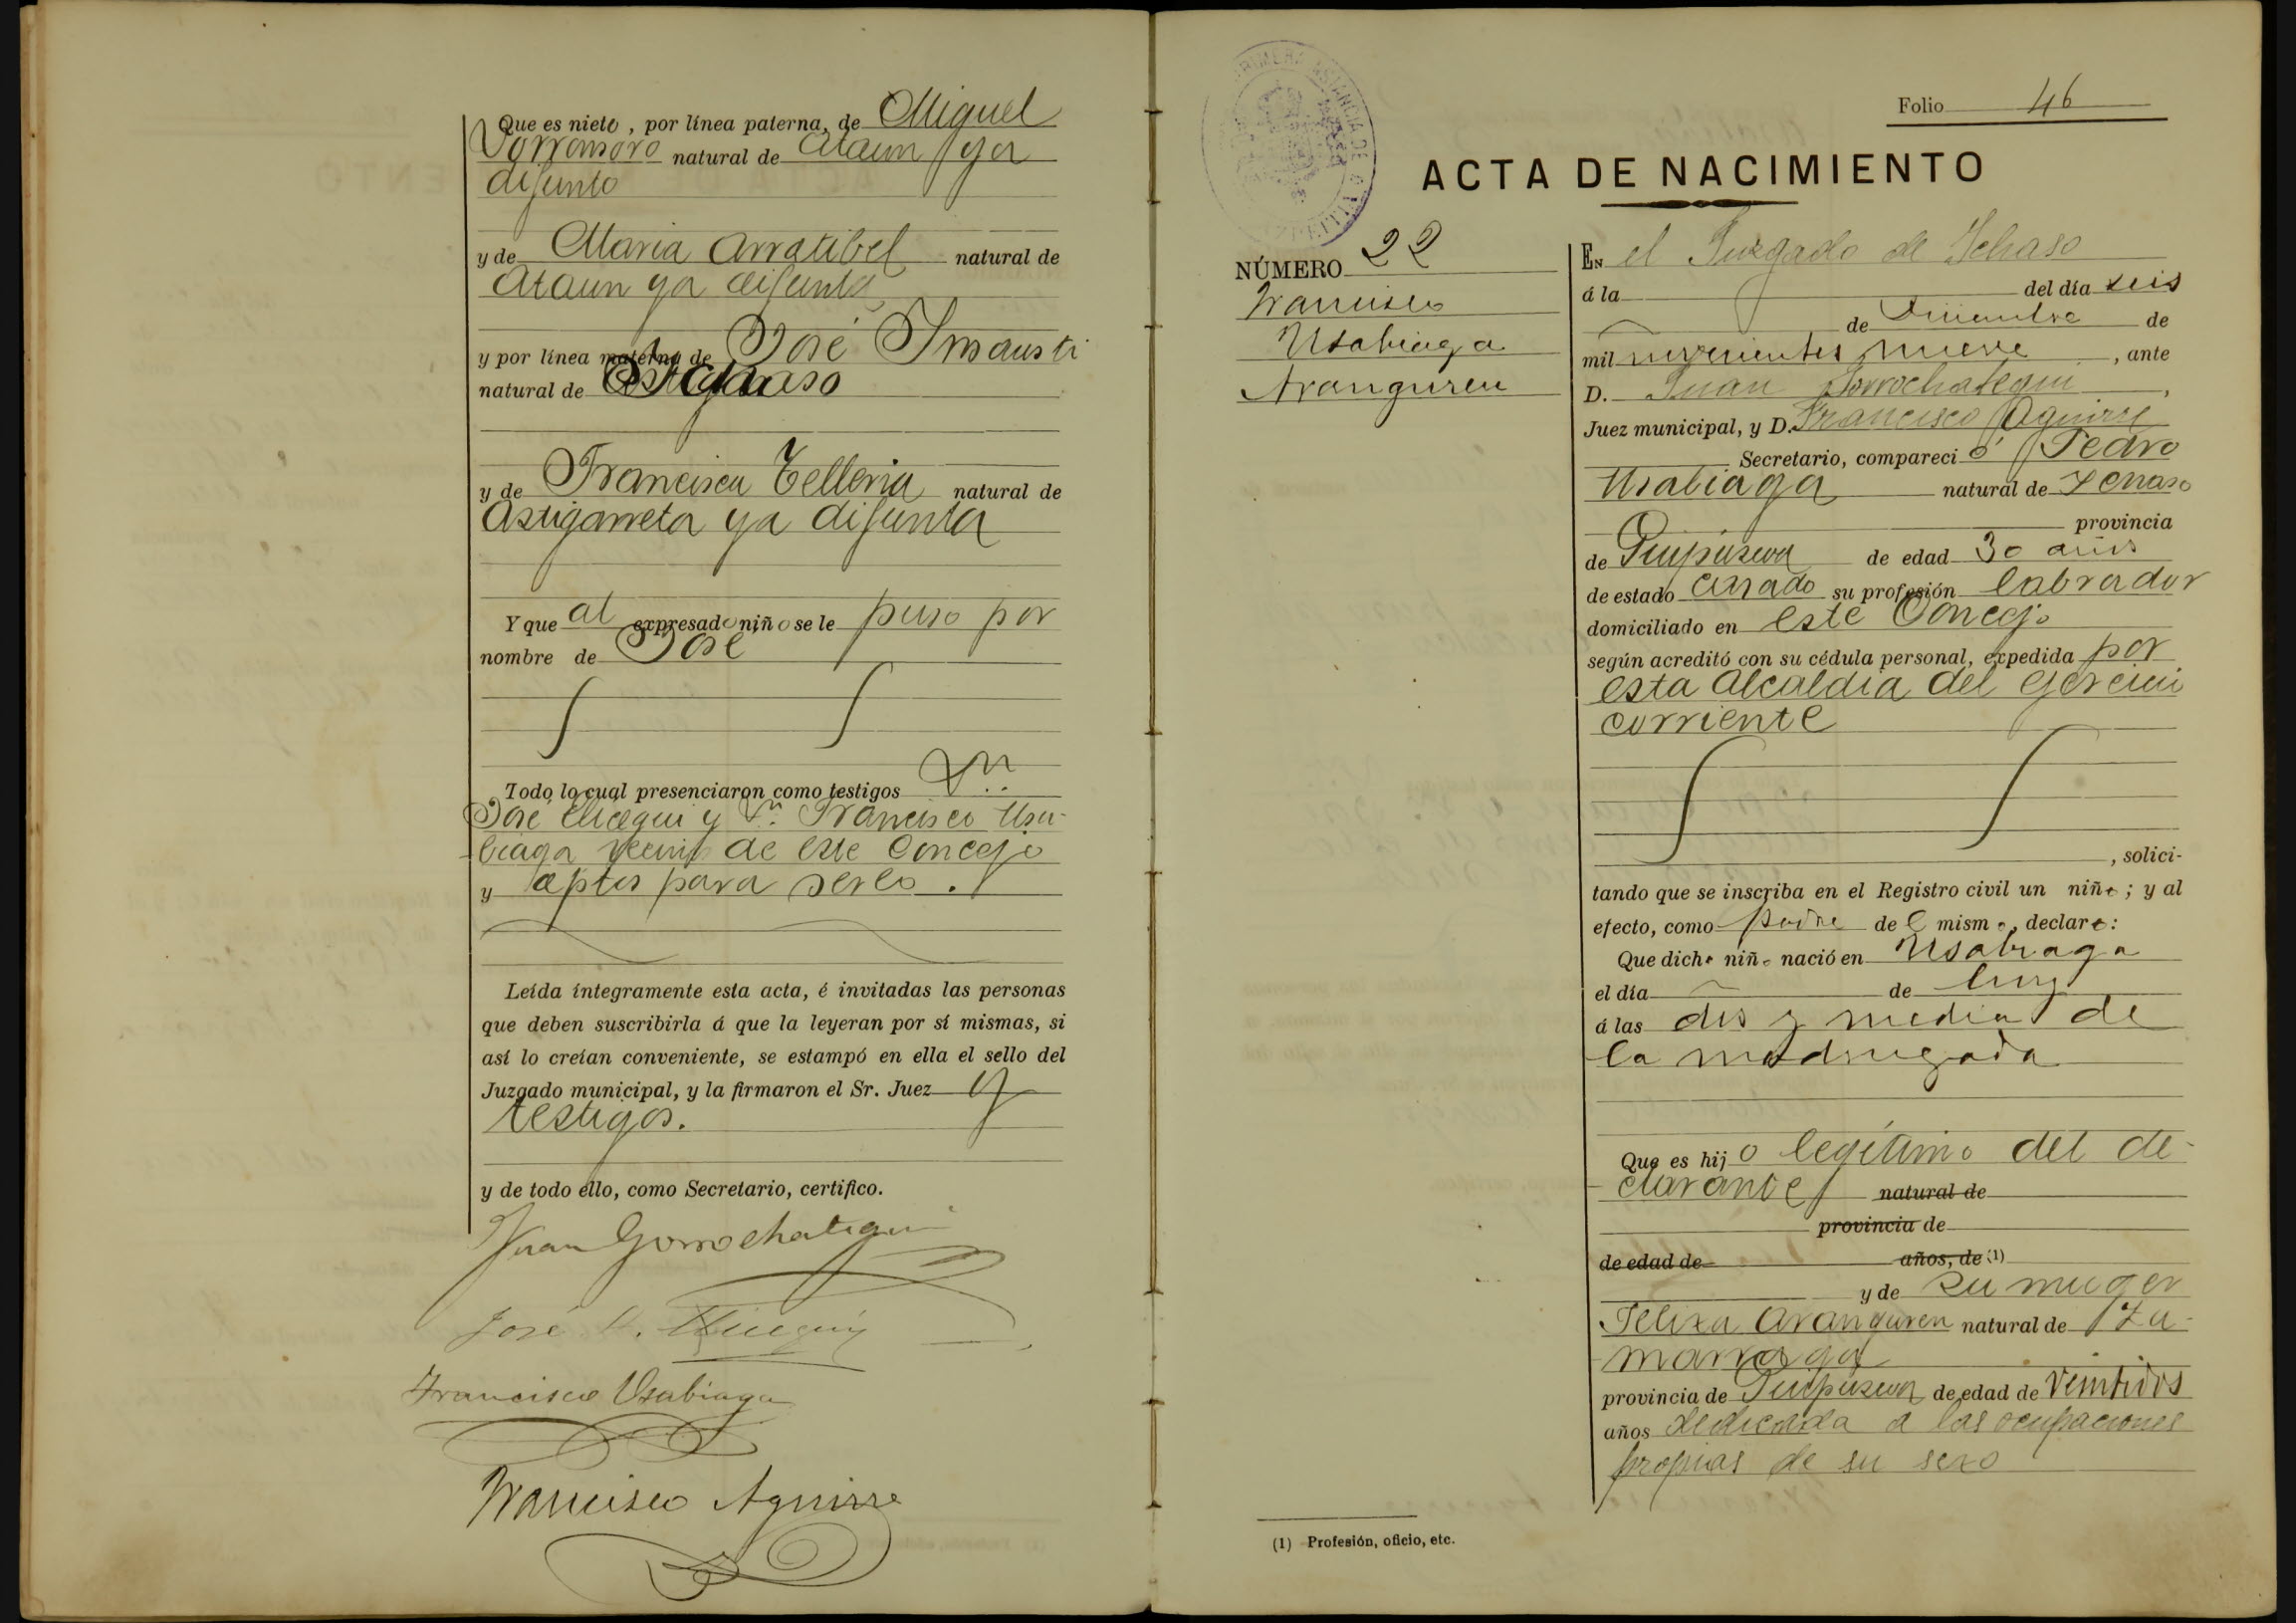 Que es nieto, por línea paterna, de Miguel
natural de Ataun ya
difunto
y de Maria Arratibel natural de
Ataun ya difunta
y por línea materna de José Imausti
natural de
y de Francisca Telleria natural de
Astigarreta ya difunta
Y que al expresado niño se le puso por
nombre de José
Todo lo cual presenciaron como testigos Dn.
José y Dn. Francisco Usa-
biaga vecinos de este Concejo
y aptos para serlo.
Leída íntegramente esta acta, é invitadas las personas
que deben suscribirla á que la leyeran por sí mismas, si
así lo creían conveniente, se estampó en ella el sello del
Juzgado municipal, y la firmaron el Sr. Juez y
testigos.
y de todo ello, como Secretario, certifico.
Juan Gorrochategui
José
Francisco Usabiaga
Francisco Aguirre
Folio 46
ACTA DE NACIMIENTO
NÚMERO 22
Francisco
Usabiaga
Aranguren
En el Juzgado de Ichaso
á la del día seis
de Diciembre de
mil novecientos nueve, ante
D. Juan Gorrochategui,
Juez municipal, y D. Francisco Aguirre
Secretario, compareció Pedro
Usabiaga natural de Ichaso
provincia
de Guipúzcoa de edad 30 años
de estado casado su profesión labrador
domiciliado en este Concejo
según acreditó con su cédula personal, expedida por
esta Alcaldia del
corriente
, solici-
tando que se inscriba en el Registro civil un niño; y al
efecto, como padre del mismo, declaro:
Que dicho niño nació en Usabiaga
el día de hoy
á las dos y media de
la madrugada
Que es hijo legítimo del de-
clarante natural de
provincia de
de edad de años, de (1)
y de su muger
Felixa Aranguren natural de Zu-
marraga
provincia de Guipúzcoa de edad de veintidos
años dedicada a las ocupaciones
propias de su sexo
(1) Profesión, oficio, etc.